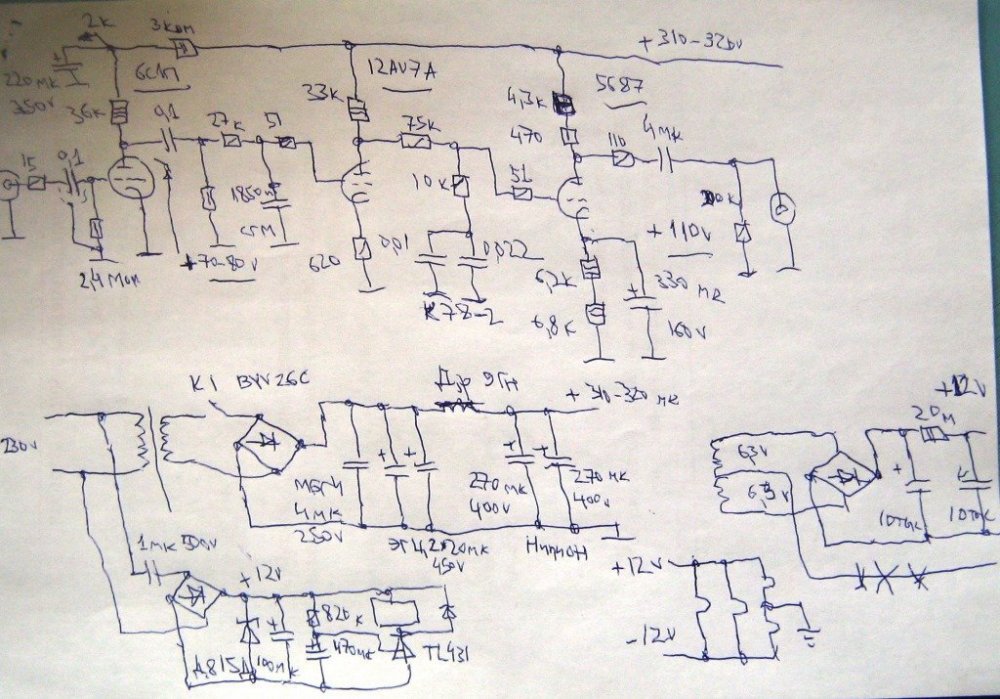 2к
3ком
+310-320v
220мк
350v
6с1п
12AV7A
5687
36к
0,1
27к
51
33к
75к
4,3к
470
110
4мк
15
0,1
10к
51
2,4мом
+70-80v
620
0,01
0,022
К78-2
+110v
6,2к
6,8к
330мк
160v
К1
BYV26C
Др 9Гн
+310-320
230v
МБГЧ
4мк
250v
270мк
400v
270мк
400v
450v
+12v
6,3v
6,3v
1мк 500v
+12v
820к
470мк
TL431
Д815Д
100мк
+12v
-12v